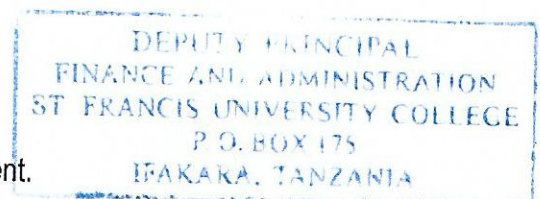 DEPUTY PRINCIPAL
FINANCE AND ADMINISTRATION
ST FRANCIS UNIVERSITY COLLEGE
P.O. BOX 175
ent.
IFAKARA, TANZANIA